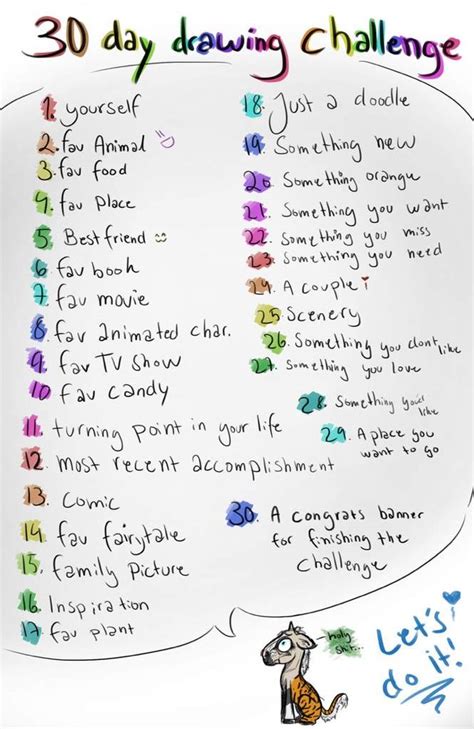 30 day drawing challenge
1. yourself
2. fav Animal
3. fav food
4. fav Place
5. Best friend
6. fav book
7. fav movie
8. fav animated char.
9. fav TV show
10 fav candy
11. turning point in your life
12. most recent accomplishment
13. Comic
14 fav fairytale
15. family Picture
16. Inspiration
17 fav plant
18. Just a doodle
19. Something new
20. Something orange
21. Something you want
22. Something you miss
23. Something you need
24. A couple
25 Scenery
26. Something you dont like
27. Something you love
28. Something
29. A place you
want to go
30. A congrats banner
for finishing the
challenge
holy
shit...
Let's
do it!